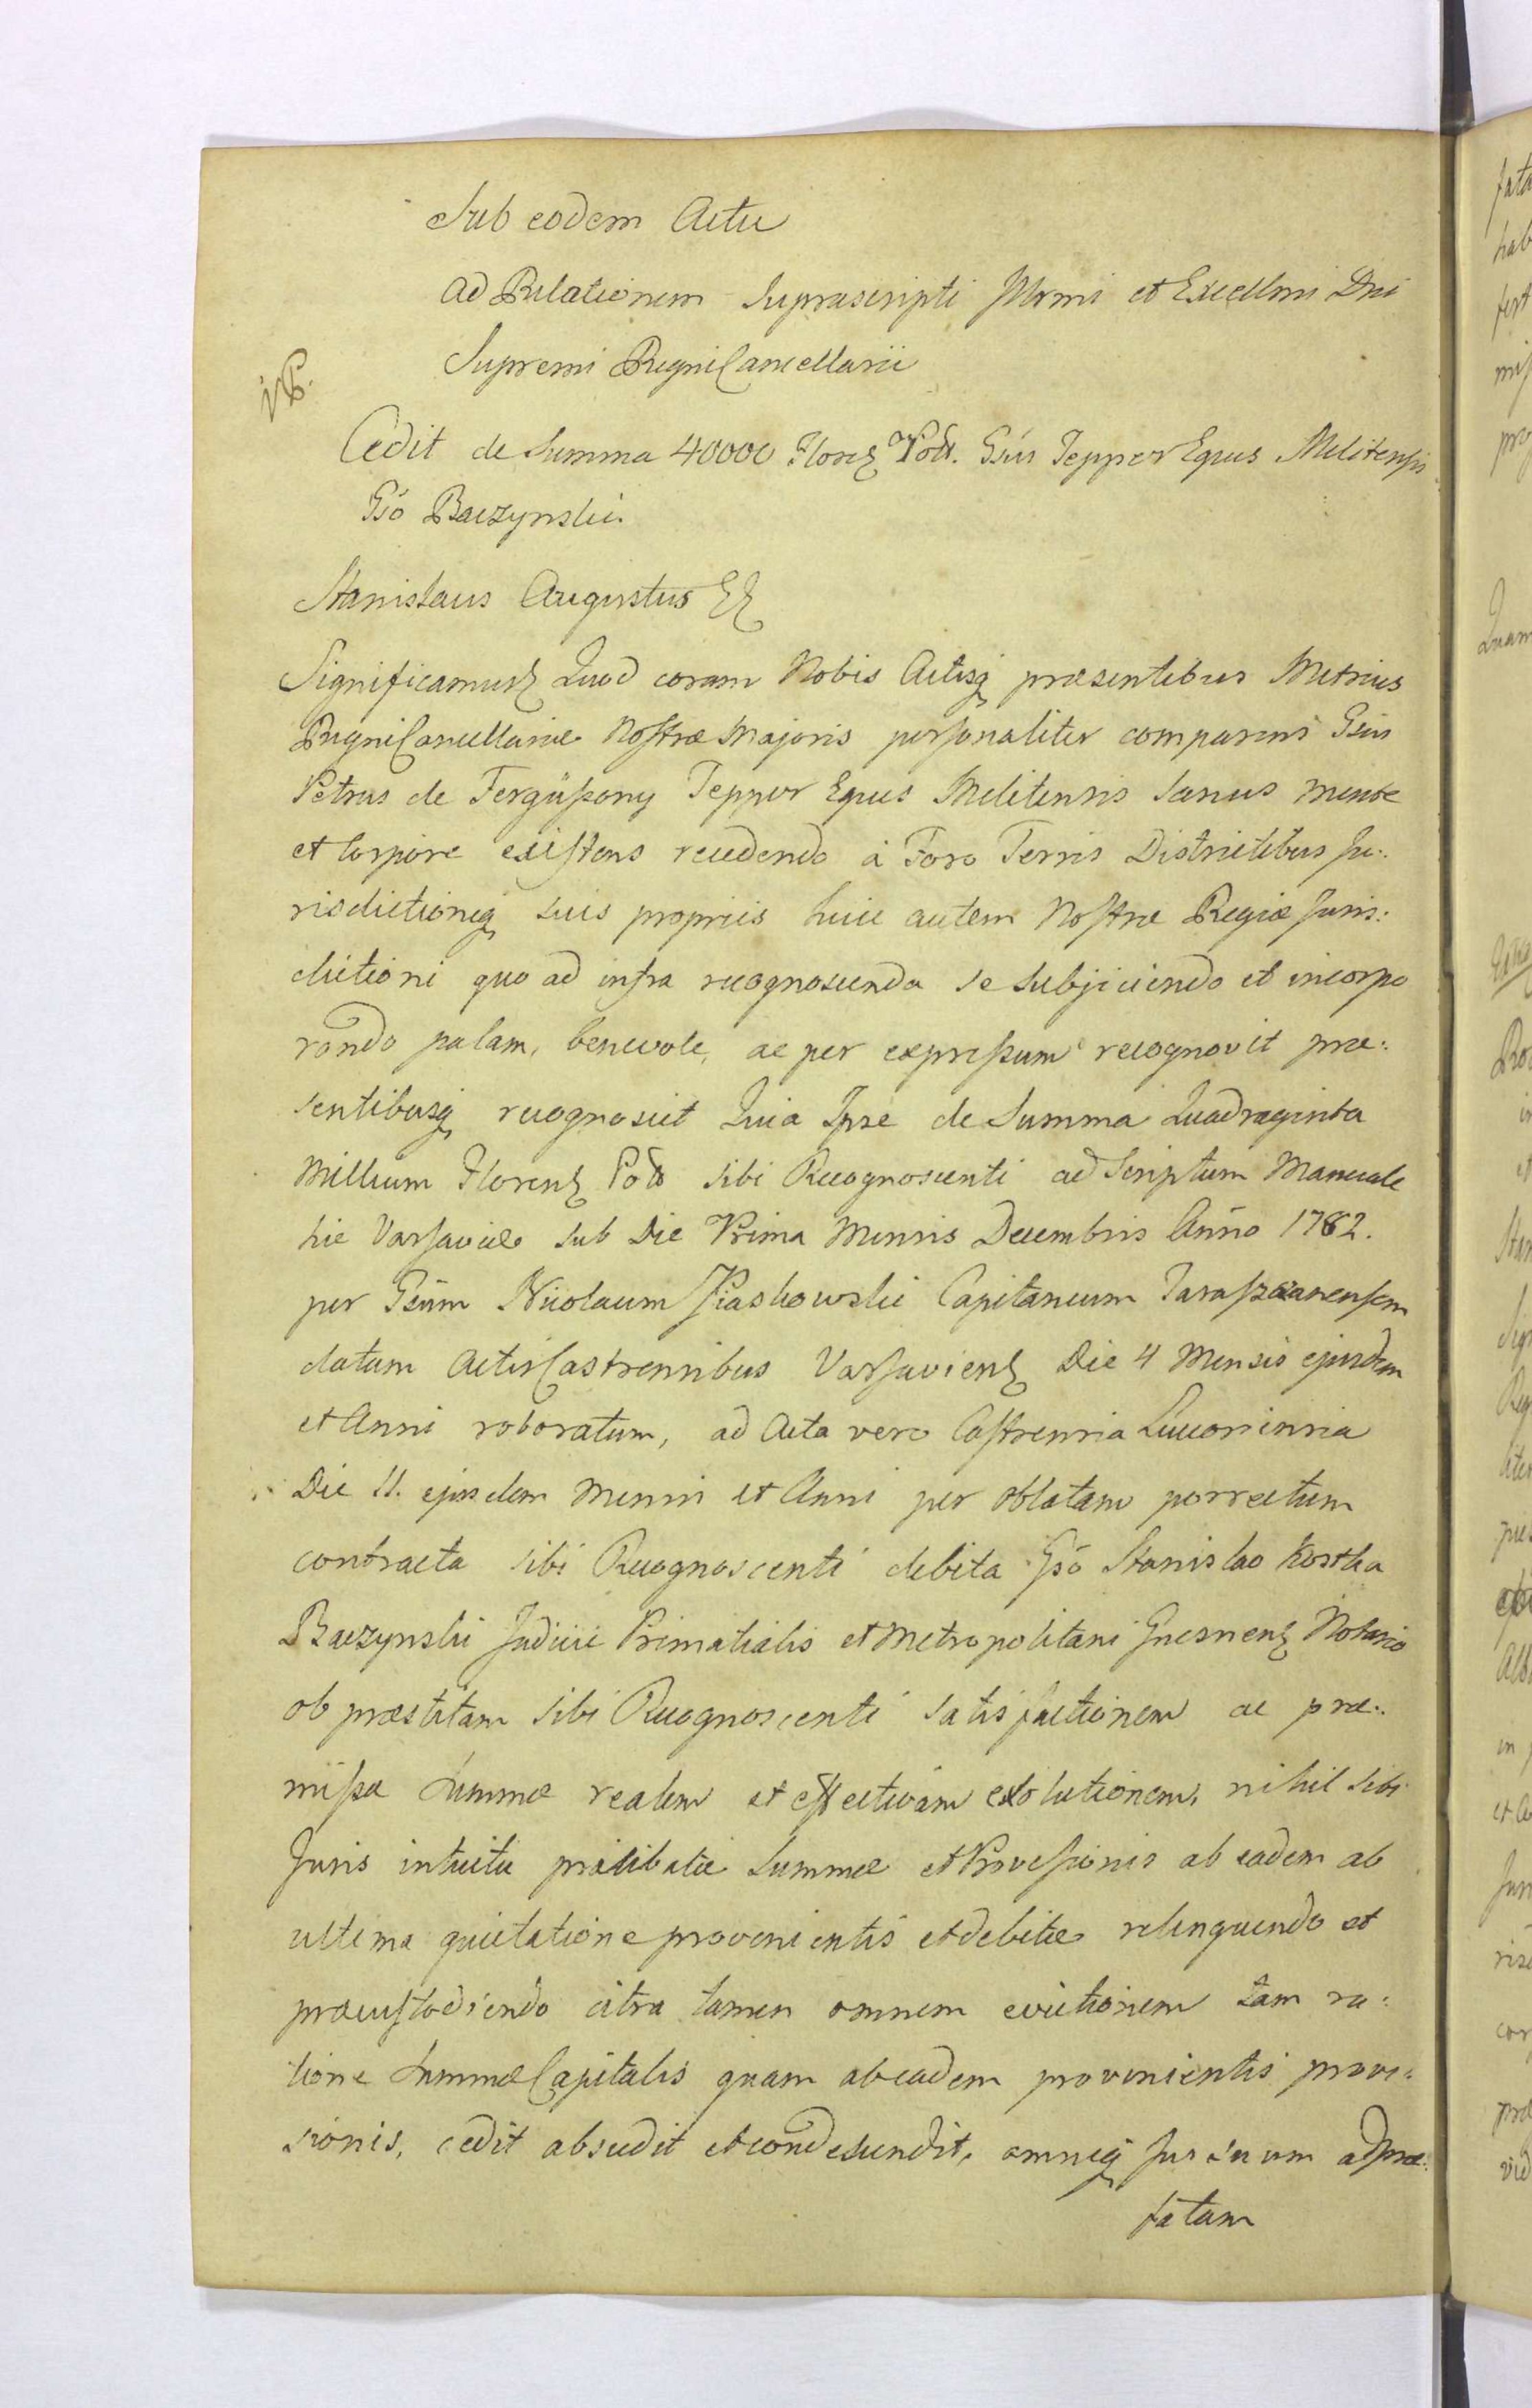 Sub eodem Actu
Ad Relationem Suprascripti Illrmi et Excellmi Dni
Supremi Regni Cancellarii
Cedit de Summa 40000 Floren Poll. Gsus Tepper Eques Melitensis
Gso Baczynski.
Stanislaus Augustus
Significamus Quod coram Nobis Actisq praesentibus Metrices
Regni Cancellariae Nostrae Majoris personaliter comparens Gsus
Petrus de Fergüssony Tepper Eques Melitensis Sanus mente
et Corpore existens recedendo à Foro Terris Districtibus Ju:
risdictioneq suis propriis huic autem Nostrae Regiae Juris:
dictioni quo ad infra recognoscenda se subjiciendo et incorpo
rando palam, benevole, ac per expressum recognovit prae:
sentibusq recognoscit Quia Ipse de Summa Quadraginta
Millium Floren Poll sibi Recognoscenti ad Scriptum Manuale
hic Varsaviae sub Die Prima Mensis Decembris Anno 1782.
per Gsum Nicolaum Piaskowski Capitaneum Taraszczanensem
datum Actis Castrensibus Varsavien Die 4 Mensis ejusdem
et Anni roboratum, ad Acta vero Castrensia Luceoriensia
Die 11. ejusdem Mensis et Anni per oblatam porrectum
contracta sibi Recognoscenti debita Gso Stanislao Kostka
Baczynski Judicii Primatialis et Metropolitani Gnesnen Notario
ob praestitam sibi Recognoscenti satisfactionem ac prae:
missae Summae realem et effectivam exolutionem, nihil sibi
Juris intuitu praelibatae Summae et Provisionis ab eadem ab
ultima quietatione provenientis et debitae relinquendo et
praecustodiendo citra tamen omnem evictionem tam ra:
tione Summae Capitalis quam ab eadem provenientis provi:
sionis, cedit abscedit et condescendit, omneq Jus suum ad prae:
fatam